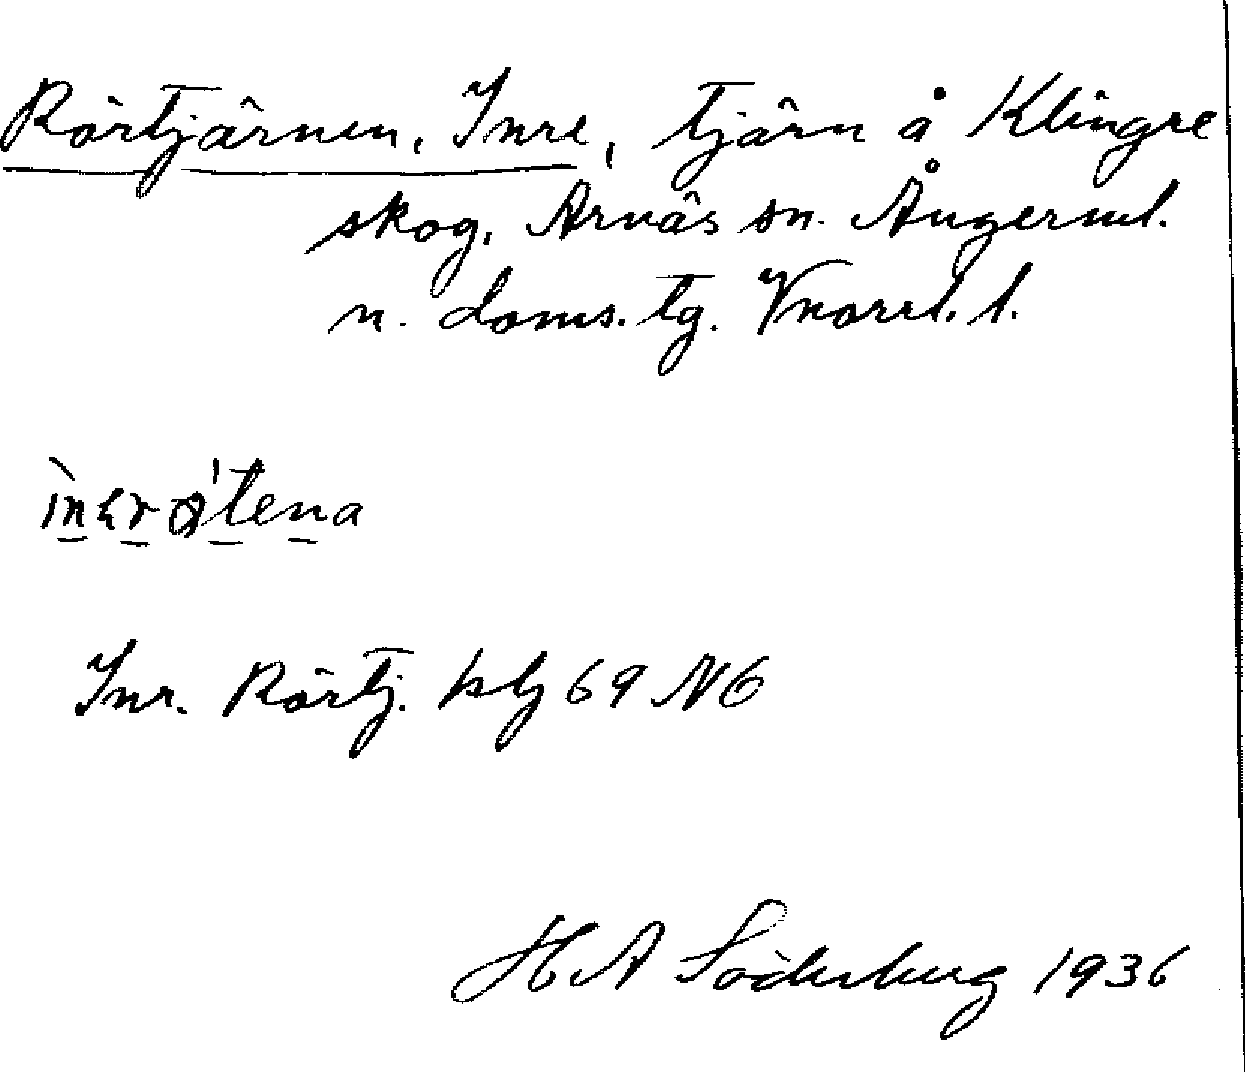 Rörtjärnen, Inre, tjärn å Klingre
skog, Arnäs sn. Ångerml.
n. doms. tg. Vnorrl. l.
Inr. Rörtj. kbl 69 NO
H A Söderberg 1936